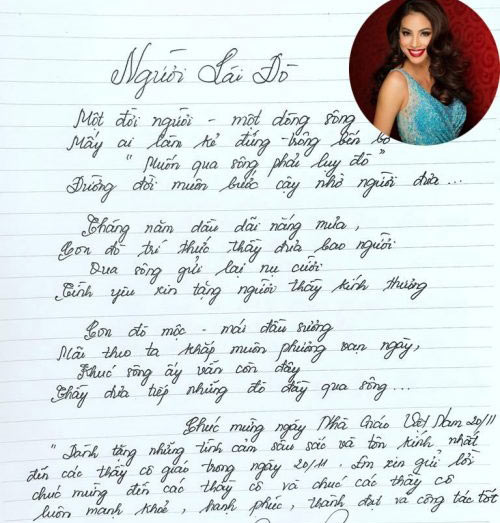 Người Lái Đò
Một đời người - một dòng sông
Mấy ai làm kẻ đứng trông bến bờ
"Muốn qua sông phải lụy đò"
Đường đời muôn bước cậy nhờ người đưa ...
Tháng năm dầu dãi nắng mưa,
Con đò trí thức thầy đưa bao người
Qua sông gửi lại nụ cười
Tình yêu xin tặng người thầy kính thương
Con đò mộc - mái đầu sương
Mãi theo ta khắp muôn phương vạn ngày,
Khúc sông ấy vẫn còn đây
Thầy đưa tiếp những đò đầy qua sông ...
Chúc mừng ngày Nhà Giáo Việt Nam 20/11
"Dành tặng những tình cảm sâu sắc và tôn kính nhất
đến các thầy cô giáo trong ngày 20/11. Em xin gửi lời
chúc mừng đến các thầy cô và chúc các thầy cô
luôn mạnh khoẻ, hạnh phúc, thành đạt và công tác tốt